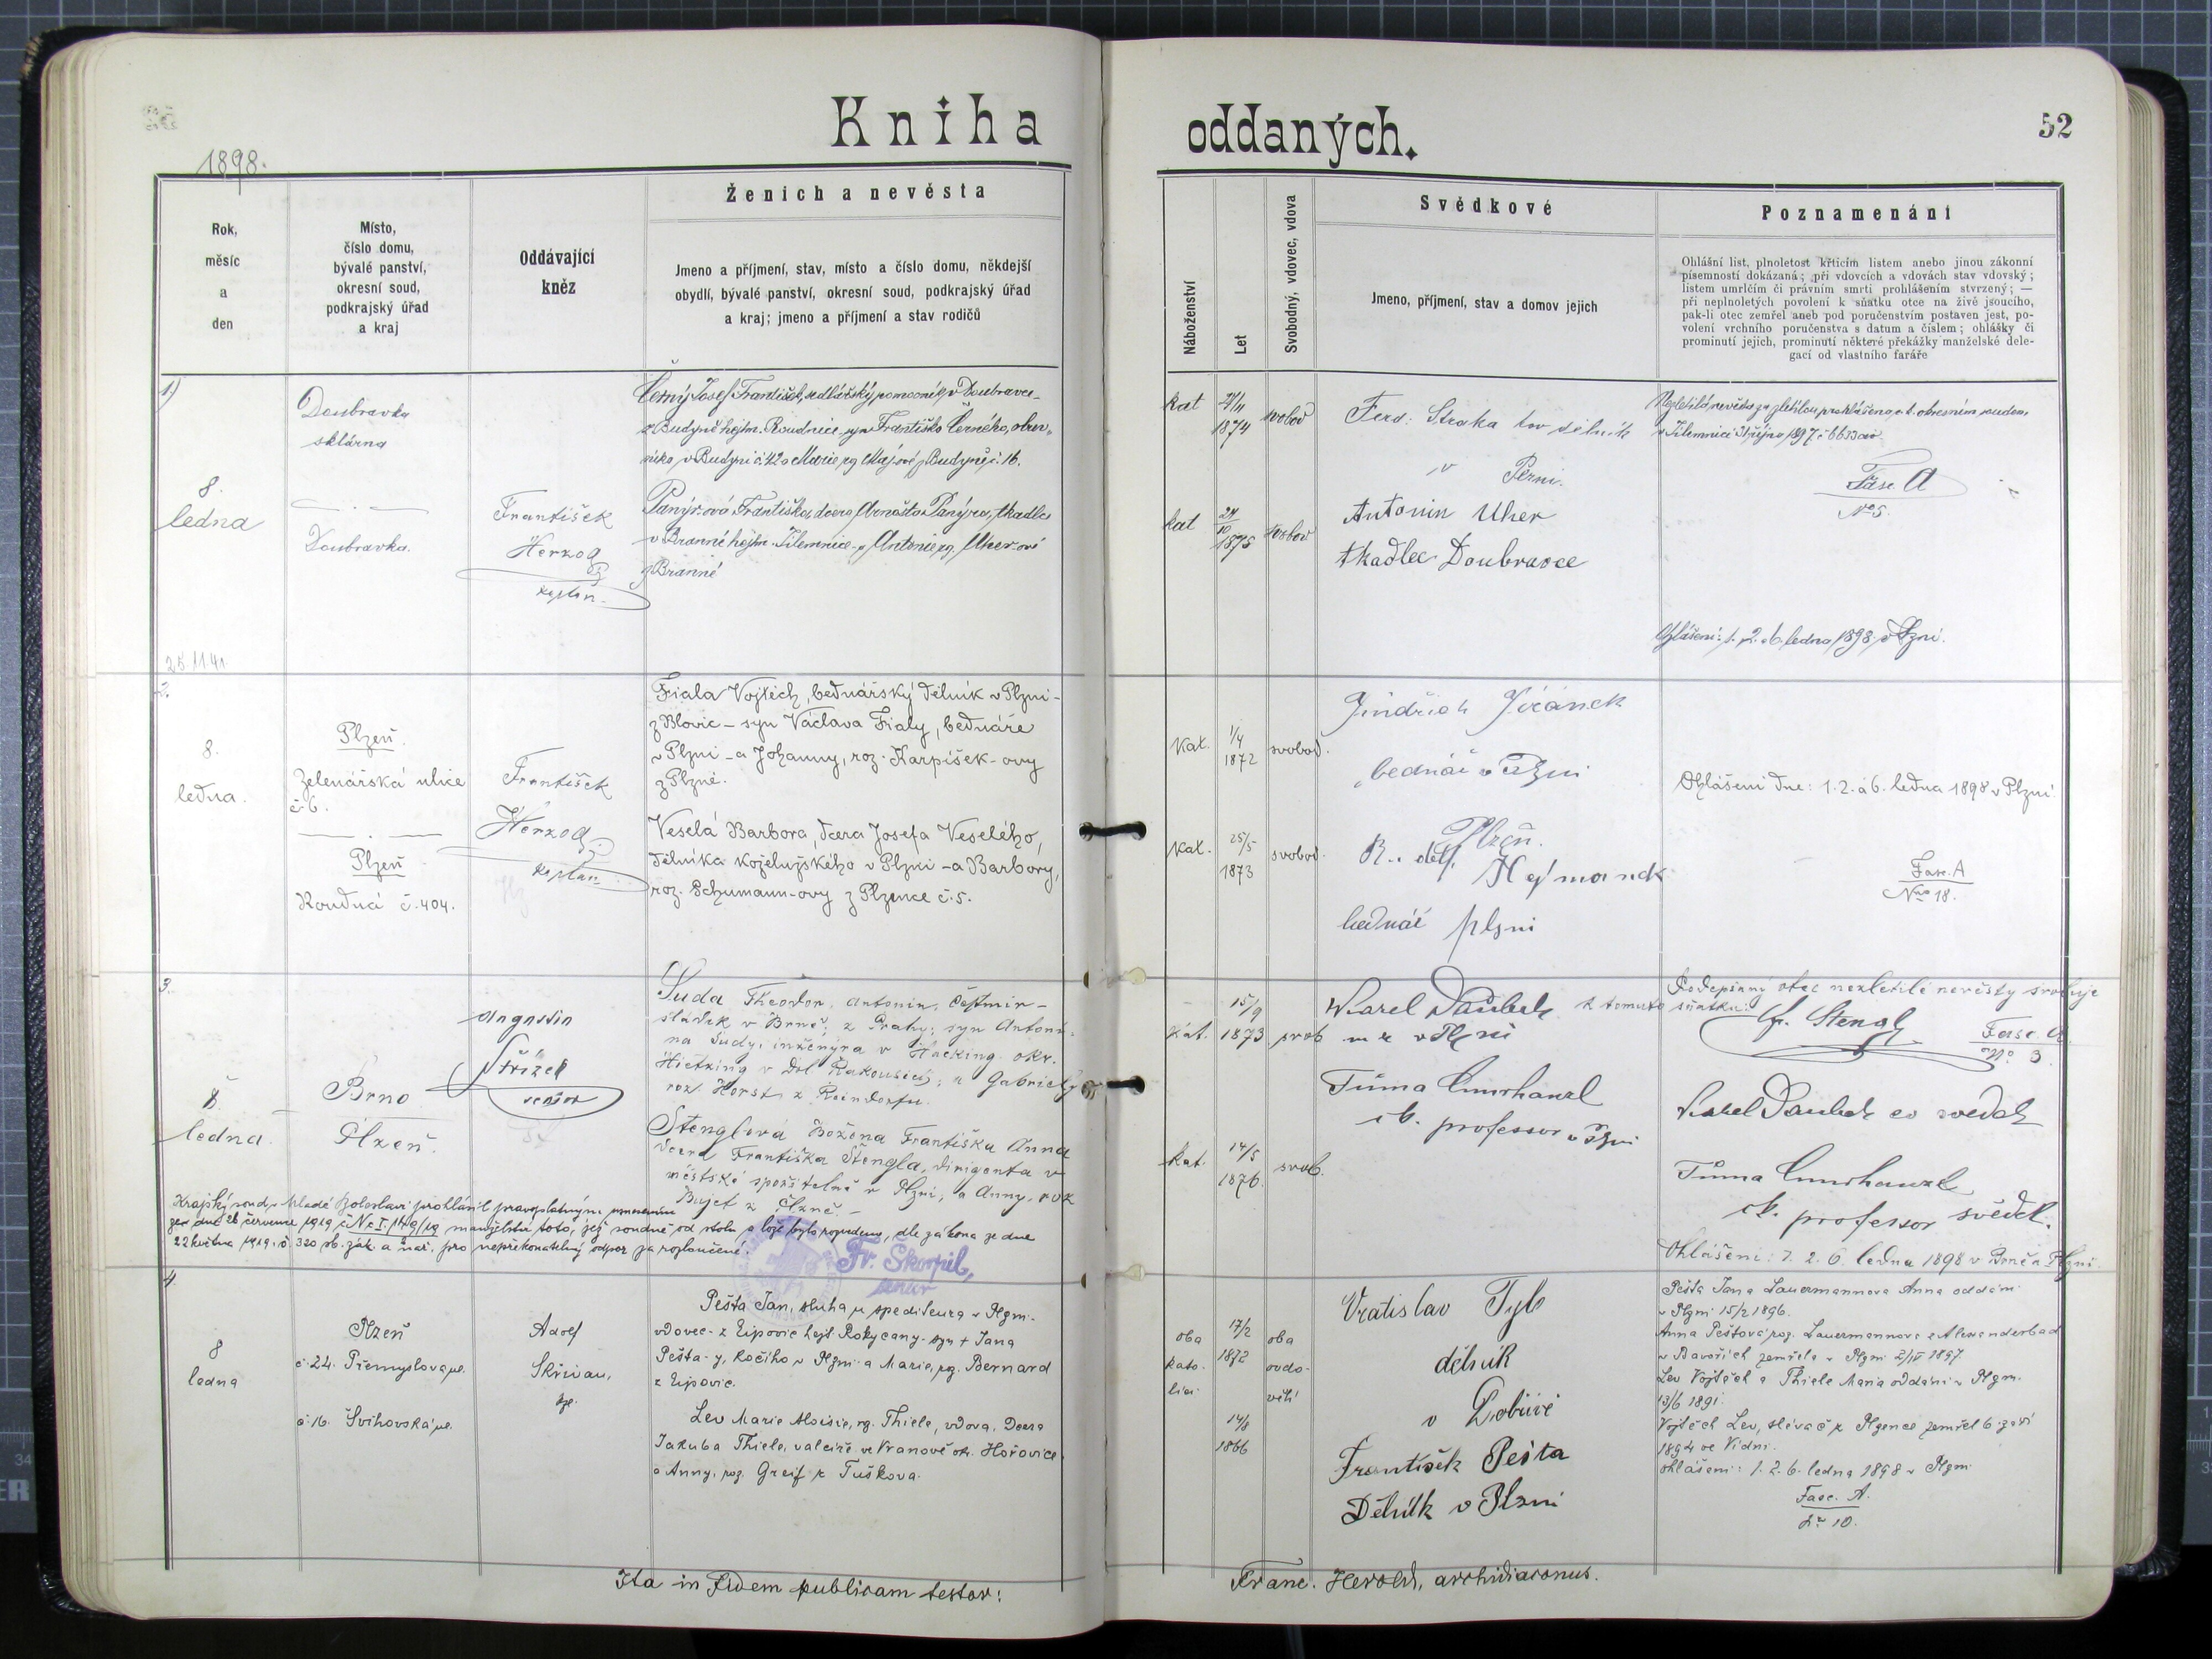 Kniha oddaných.
52
1898.
Rok,
měsíc
a
den
Místo,
číslo domu,
bývalé panství,
okresní soud,
podkrajský úřad
a kraj
Oddávající
kněz
Ženich a nevěsta
Jmeno a příjmení, stav, místo a číslo domu, někdejší
obydlí, bývalé panství, okresní soud, podkrajský úřad
a kraj; jmeno a příjmení a stav rodičů
Náboženství
Let
Svobodný, vdovec, vdova
Svědkové
Jmeno, příjmení, stav a domov jejich
Poznamenání
Ohlášní list, plnoletost křticím listem anebo jinou zákonní
písemností dokázaná; při vdovcích a vdovách stav vdovský;
listem umrlčím či právním smrti prohlášením stvrzený; —
při neplnoletých povolení k sňatku otce na živě jsoucího,
pak-li otec zemřel aneb pod poručenstvím postaven jest, po-
volení vrchního poručenstva s datum a číslem; ohlášky či
prominutí jejich, prominutí některé překážky manželské dele-
gací od vlastního faráře
1)
8.
ledna
Doubravka
sklárna
Doubravka.
František
Herzog
kaplan
Černý Josef František, sedlářský pomocník v Doubravce-
z Budyně hejtm. Roudnice - syn Františka Černého, obuv-
níka v Budyni č. 42 a Marie rg. Májové z Budyně č. 16.
Panýrová Františka dcera Arnošta Panýra, tkadlce
v Branné hejtm. Jilemnice - a Antonie rg. Uher-ové
z Branné
kat
1874
svobod
kat
24
10
1875
svobod
Ferd. Straka tov dělník
v Plzni.
Antonin Uher
tkadlec Doubravce
Nezletilá nevěsta za zletilou prohlášena c. k. okresním soudem
v Jilemnici
Fasc. A
No 5.
Ohlášení: 1. 2. a 6. ledna 1898 v Plzni.
25.11.41.
2.
8.
ledna.
Plzeň.
Zelenářská ulice
č. 6.
Plzeň
Roudná č. 404.
František
Herzog
kaplan
Fiala Vojtěch, bednářský dělník v Plzni -
z Blovic - syn Václava Fialy, bednáře
v Plzni - a Johanny, roz. Karpíšek-ovy
z Plzně.
Veselá Barbora, dcera Josefa Veselého,
dělníka koželužského v Plzni - a Barbory,
roz. Schumann-ovy z Plzence č. 5.
Kat.
1/4
1872
svobod.
Kat.
25/5
1873
svobod.
Jindřich Jiránek
bednář v Plzni
Plzeň.
bednář plzni
Ohlášeni dne: 1. 2. a 6. ledna 1898 v Plzni.
Fasc. A
Nro 18.
3.
8
ledna.
Brno
Plzeň.
Augustin
Střízek
senior
Suda Theodor, Antonin, Čestmír -
sládek v Brně, z Prahy; syn Antoní-
na Sudy, inženýra v Hacking okr.
Hietzing v Dol. Rakousích; a Gabriely
roz. Horst z Reindorfu.
Stenglova Božena Františka Anna
dcera Františka Stengla, dirigenta v
městské spořitelně v Plzni; a Anny, roz
Bujet z Plzně. -
Krajský soud v Mladé Boleslavi prohlásil pravoplatným usnesením
ze dne 26 července 1919 č. Nc I. 1149/19 manželství toto, jež soudně od stolu a lože bylo rozvedeno, dle zákona ze dne
22 května 1919. č. 320 sb. zák. a nař. pro nepřekonatelný odpor za rozloučené.
Fr. Škorpil,
senior
15/9
Kat. 1873 svob.
Kat.
14/5
1876.
svob.
Karel Daubek
v Plzni
Tůma
c. k. professor v Plzni
Podepsaný otec nezletilé nevěsty svoluje
k tomuto sňatku:
Fr. Stengl
Fasc. A.
No. 3.
Karel Daubek co svědek
Tůma
c. k. professor svědek.
Ohlášeni: 1. 2. 6. ledna 1898 v Brně a Plzni.
4.
8
ledna
Plzeň
č. 24. Přemyslova ul.
č. 16. Švihovská ul.
Adolf
Skřivan,
kpl.
Pešta Jan, sluha u spediteura v Plzni -
vdovec - z Ejpovic hejt. Rokycany - syn + Jana
Pešta-y, kočího v Plzni - a Marie, rg. Bernard
z Ejpovic.
Lev Marie Aloisie, rg. Thiele, vdova, Dcera
Jakuba Thiele, valcíře ve Vranově okr. Hořovice
a Anny, roz. Greif z Tuškova.
oba
kato-
líci
17/2
1872
14/8
1866
oba
ovdo-
vělí
Vratislav Tyb
dělník
v Dobřívě
František Pešta
Dělník v Plzni
Pešta Jan a Lauermannova Anna oddáni
v Plzni 15/2 1896.
Anna Peštová roz. Lauermannova z Alexanderbad
v Bavořích zemřela v Plzni 2/IV 1897.
Lev Vojtěch a Thiele Maria oddáni v Plzni.
13/6 1891.
Vojtěch Lev, slévač z Plzence zemřel 6. září
1894 ve Vídni.
Ohlášeni: 1. 2. 6. ledna 1898 v Plzni
Fasc. A.
No 10.
Ita in fidem publicam testor: Franc. Herold, archidiaconus.